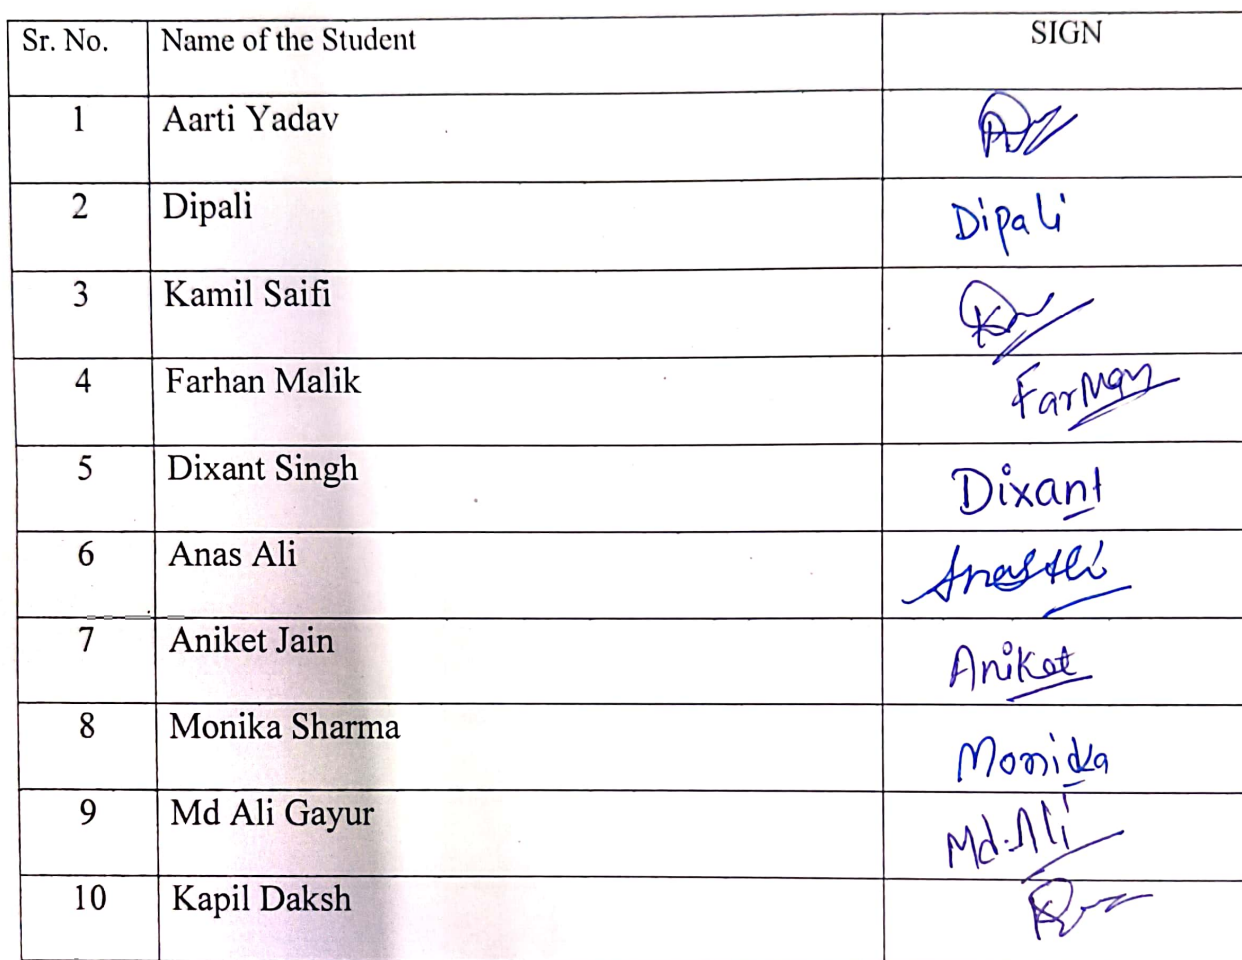 Sr. No. Name of the Student SIGN
1 Aarti Yadav
2 Dipali Dipali
3 Kamil Saifi
4 Farhan Malik Farhan
5 Dixant Singh Dixant
6 Anas Ali Anas Ali
7 Aniket Jain Aniket
8 Monika Sharma Monika
9 Md Ali Gayur Md. Ali
10 Kapil Daksh